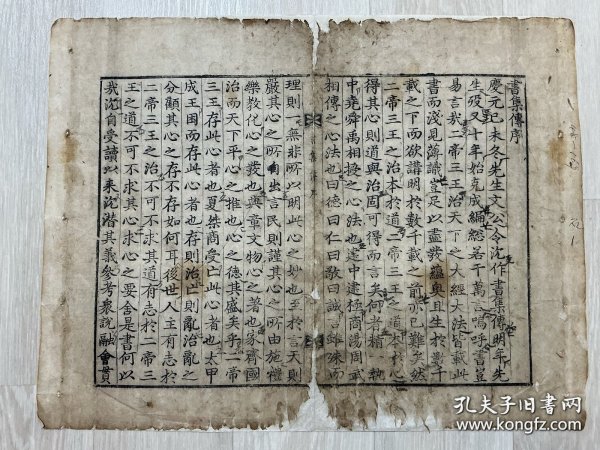 書集傳序
慶元己未冬先生文公令沈作書集傳明年先
生歿又十年始克成編總若干萬言嗚呼書豈
易言哉二帝三王治天下之大經大法皆載此
書而淺見薄識豈足以盡發蘊奧且生於數千
載之下而欲講明於數千載之前亦已難矣然
二帝三王之治本於道二帝三王之道本於心
得其心則道與治固可得而言矣何者精一執
中堯舜禹相授之心法也建中建極商湯周武
相傳之心法也曰德曰仁曰敬曰誠言雖殊而
理則一無非所以明此心之妙也至於言天則
嚴其心之所自出言民則謹其心之所由施禮
樂教化心之發也典章文物心之著也家齊國
治而天下平心之推也心之德其盛矣乎二帝
三王存此心者也夏桀商受亡此心者也太甲
成王困而存此心者也存則治亡則亂治亂之
分顧其心之存不存如何耳後世人主有志於
二帝三王之治不可不求其道有志於二帝三
王之道不可不求其心求心之要舍是書何以
哉沈自受讀以來沈潜其義參考衆說融會貫
孔夫子旧书网
www.kongfz.com